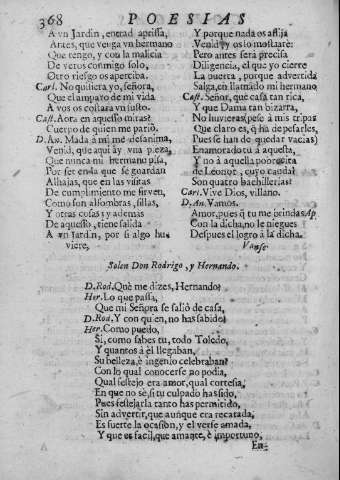 368 POESIAS
A vn Jardin, entrad aprissa,
Antes, que venga vn hermano
Que tengo, y con la malicia
De veros conmigo solo,
Otro riesgo os aperciba.
Carl. No quisiera yo, señora,
Que el amparo de mi vida
A vos os costara vn susto.
Cast. Aora en aquesso miras?
Cuerpo de quien me pariò.
D. An. Nada à mi me desanima,
Venid, que aqui ay vna pieza,
Que nunca mi hermano pisa,
Por ser en la que se guardan
Alhajas, que en las visitas
De cumplimiento me sirven,
Como son alfombras, sillas,
Y otras cosas; y ademas
De aquesso, tiene salida
A vn Jardin, por si algo hu-
viere,
Y porque nada os aflija
Venid, y os lo mostarè:
Pero antes serà precisa
Diligencia, el que yo cierre
La puerta, porque advertida
Salga, en llamado mi hermano
Cast. Señor, què casa tan rica,
Y que Dama tan bizarra,
No huvieras (pese à mis tripas
Que claro es, q̃ hà de pesarles,
Pues se han de quedar vacias)
Enamorado tu à aquesta,
Y no à aquella pobrecita
de Leonor, cuyo caudal
Son quatro bachillerias?
Carl. Vive Dios, villano.
D. An. Vamos.
Amor, pues q̃ tu me brindas Ap
Con la dicha, no le niegues
Despues el logro à la dicha.
Vanse.
Salen Don Rodrigo, y Hernando.
D. Rod. Què me dizes, Hernando?
Her. Lo que passa,
Que mi Señora se saliò de casa,
D. Rod. Y con quien, no has sabido?
Her. Como puedo,
Si, como sabes tu, todo Toledo,
Y quantos à èl llegaban,
Su belleza, è ingenio celebraban?
Con lo qual conocerse no podia,
Qual festejo era amor, qual cortesia,
En que no sè, si tu culpado has sido,
Pues festejarla tanto has permitido,
Sin advertir, que aunque era recatada,
Es fuerte la ocasion, y el verse amada,
Y que es facil, que amante, è importuno,
En-